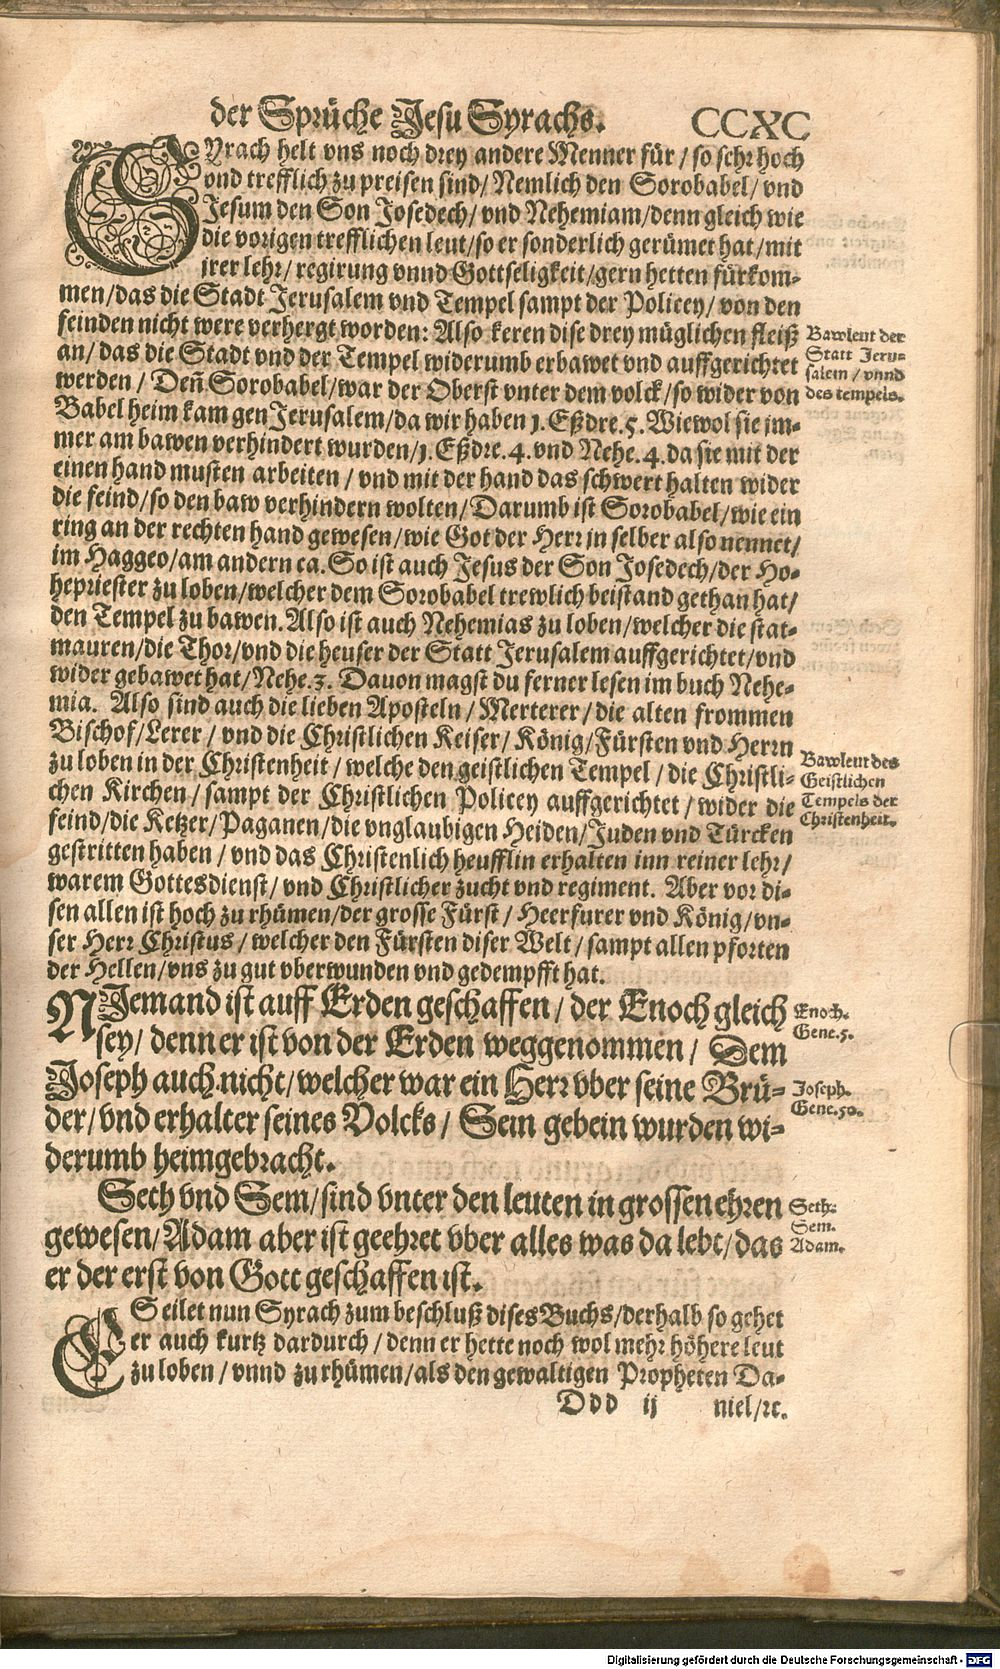 der Sprüche Jesu Syrachs. CCXC
SYrach helt vns noch drey andere Menner für / so sehr hoch
vnd trefflich zu preisen sind / Nemlich den Sorobabel / vnd
Jesum den Son Josedech / vnd Nehemiam / denn gleich wie
die vorigen trefflichen leut / so er sonderlich gerümet hat / mit
jrer lehr / regirung vnnd Gottseligkeit / gern hetten fürkom-
men / das die Stadt Jerusalem vnd Tempel sampt der Policey / von den
feinden nicht were verhergt worden: Also keren dise drey müglichen fleiß
an / das die Stadt vnd der Tempel widerumb erbawet vnd auffgerichtet
werden / Deñ Sorobabel / war der Oberst vnter dem volck / so wider von
Babel heim kam gen Jerusalem / da wir haben 1. Eßdre. 5. Wiewol sie im-
mer am bawen verhindert wurden / 1. Eßdre. 4. vnd Nehe. 4. da sie mit der
einen hand musten arbeiten / vnd mit der hand das schwert halten wider
die feind / so den baw verhindern wolten / Darumb ist Sorobabel / wie ein
ring an der rechten hand gewesen / wie Got der Herr in selber also nennet /
im Haggeo / am andern ca. So ist auch Jesus der Son Josedech / der Ho-
hepriester zu loben / welcher dem Sorobabel trewlich beistand gethan hat /
den Tempel zu bawen. Also ist auch Nehemias zu loben / welcher die stat-
mauren / die Thor / vnd die heuser der Statt Jerusalem auffgerichtet / vnd
wider gebawet hat / Nehe. 3. Dauon magst du ferner lesen im buch Nehe-
mia. Also sind auch die lieben Aposteln / Merterer / die alten frommen
Bischof / Lerer / vnd die Christlichen Keiser / König / Fürsten vnd Herrn
zu loben in der Christenheit / welche den geistlichen Tempel / die Christli-
chen Kirchen / sampt der Christlichen Policey auffgerichtet / wider die
feind / die Ketzer / Paganen / die vnglaubigen Heiden / Juden vnd Türcken
gestritten haben / vnd das Christenlich heufflin erhalten inn reiner lehr /
warem Gottesdienst / vnd Christlicher zucht vnd regiment. Aber vor di-
sen allen ist hoch zu rhümen / der grosse Fürst / Heerfurer vnd König / vn-
ser Herr Christus / welcher den Fürsten diser Welt / sampt allen pforten
der Hellen / vns zu gut vberwunden vnd gedempfft hat.
Bawleut der
Statt Jeru-
salem / vnnd
des tempels.
Bawleut des
Geistlichen
Tempels der
Christenheit.
NJemand ist auff Erden geschaffen / der Enoch gleich
sey / denn er ist von der Erden weggenommen / Dem
Joseph auch nicht / welcher war ein Herr vber seine Brü-
der / vnd erhalter seines Volcks / Sein gebein wurden wi-
derumb heimgebracht.
Enoch.
Gene. 5.
Joseph.
Gene. 50.
Seth vnd Sem / sind vnter den leuten in grossen ehren
gewesen / Adam aber ist geehret vber alles was da lebt / das
er der erst von Gott geschaffen ist.
Seth.
Sem.
Adam.
ES eilet nun Syrach zum beschluß dises Buchs / derhalb so gehet
er auch kurtz dardurch / denn er hette noch wol mehr höhere leut
zu loben / vnnd zu rhümen / als den gewaltigen Propheten Da-
Ddd ij niel / ꝛc.
Digitalisierung gefördert durch die Deutsche Forschungsgemeinschaft - DFG